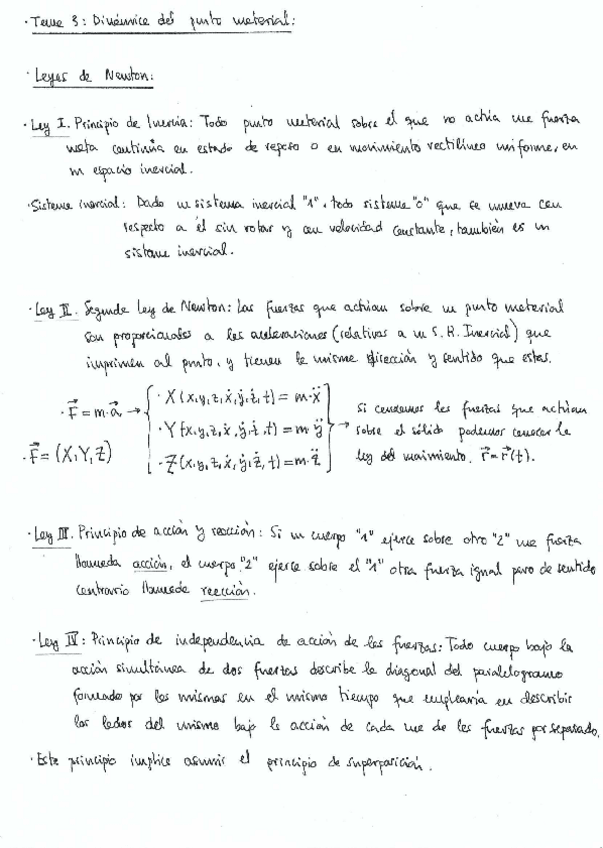 · Tema 3: Dinámica del punto material:
· Leyes de Newton:
· Ley I. Principio de Inercia: Todo punto material sobre el que no actúa una fuerza
neta continúa en estado de reposo o en movimiento rectilíneo uniforme, en
un espacio inercial.
· Sistema inercial: Dado un sistema inercial "1", todo sistema "0" que se mueva con
respecto a él sin rotar y con velocidad constante, también es un
sistema inercial.
· Ley II. Segunda Ley de Newton: Las fuerzas que actúan sobre un punto material
son proporcionales a las aceleraciones (relativas a un S. R. Inercial) que
imprimen al punto, y tienen la misma dirección y sentido que estas.
· F⃗ = m·a⃗ → { · X (x,y,z,ẋ,ẏ,ż,t) = m·ẍ
· Y (x,y,z,ẋ,ẏ,ż,t) = m·ÿ
· Z (x,y,z,ẋ,ẏ,ż,t) = m·z̈ }
· F⃗ = (X,Y,Z)
→ Si conocemos las fuerzas que actúan
sobre el sólido podemos conocer la
ley del movimiento. r⃗ = r⃗(t).
· Ley III. Principio de acción y reacción: Si un cuerpo "1" ejerce sobre otro "2" una fuerza
llamada acción, el cuerpo "2" ejerce sobre el "1" otra fuerza igual pero de sentido
contrario llamada reacción.
· Ley IV: Principio de independencia de acción de las fuerzas: Todo cuerpo bajo la
acción simultánea de dos fuerzas describe la diagonal del paralelogramo
formado por las mismas en el mismo tiempo que emplearía en describir
los lados del mismo bajo la acción de cada una de las fuerzas por separado.
· Este principio implica asumir el principio de superposición.